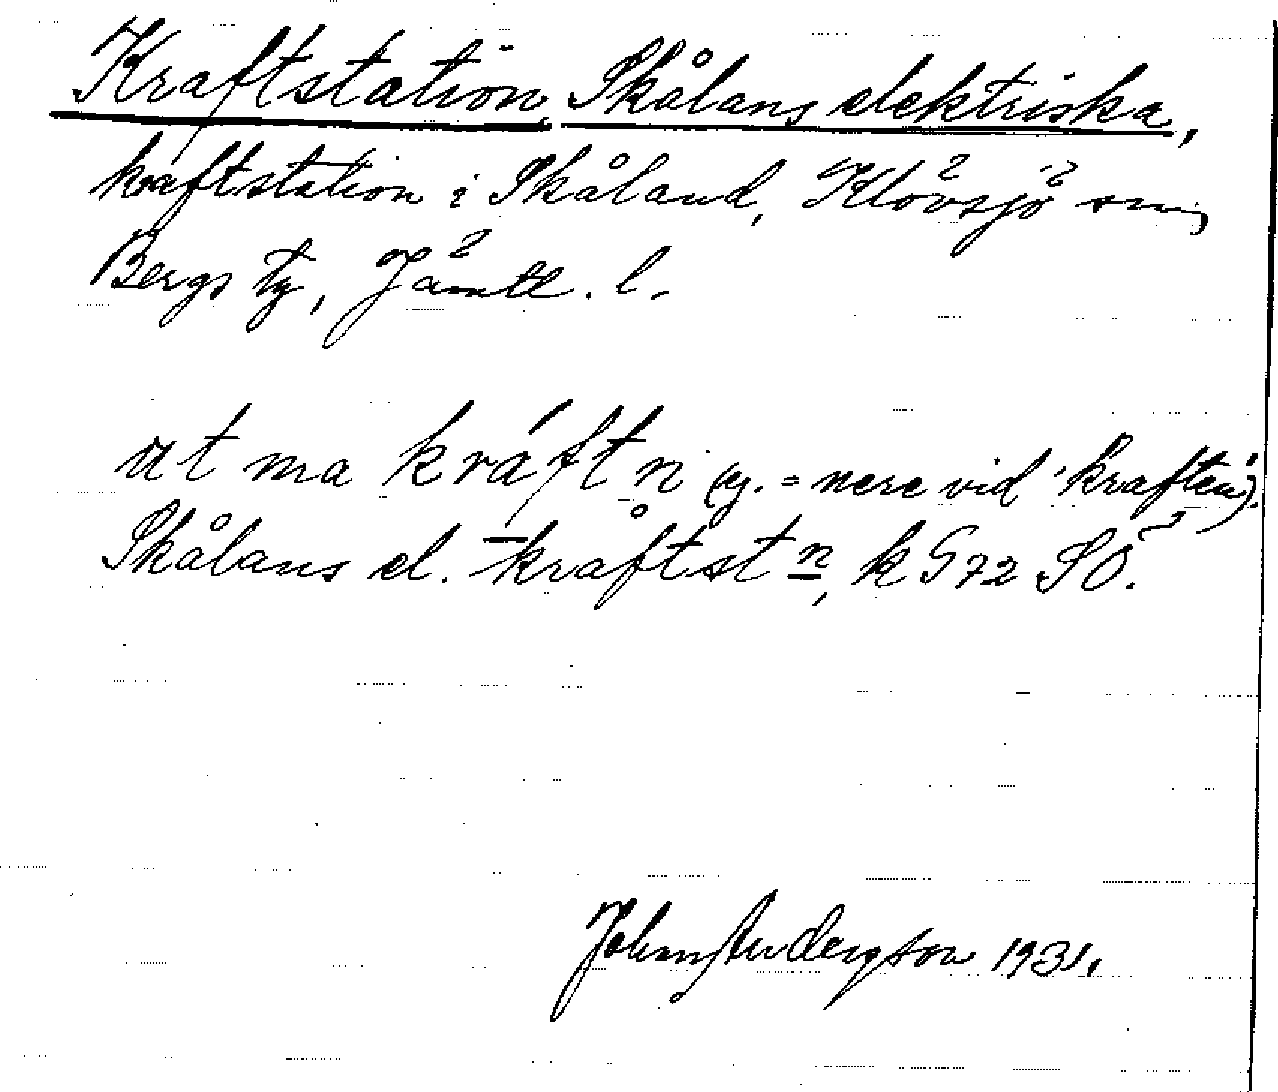 Kraftstation, Skålans elektriska,
kraftstation i Skåland, Klövsjö sn,
Bergs tg, Jämtl. l.
at ma kráft n (eg. = nere vid 'kraften').
Skålans el. kraftst n, k G72 SO.
John Andersson 1931.